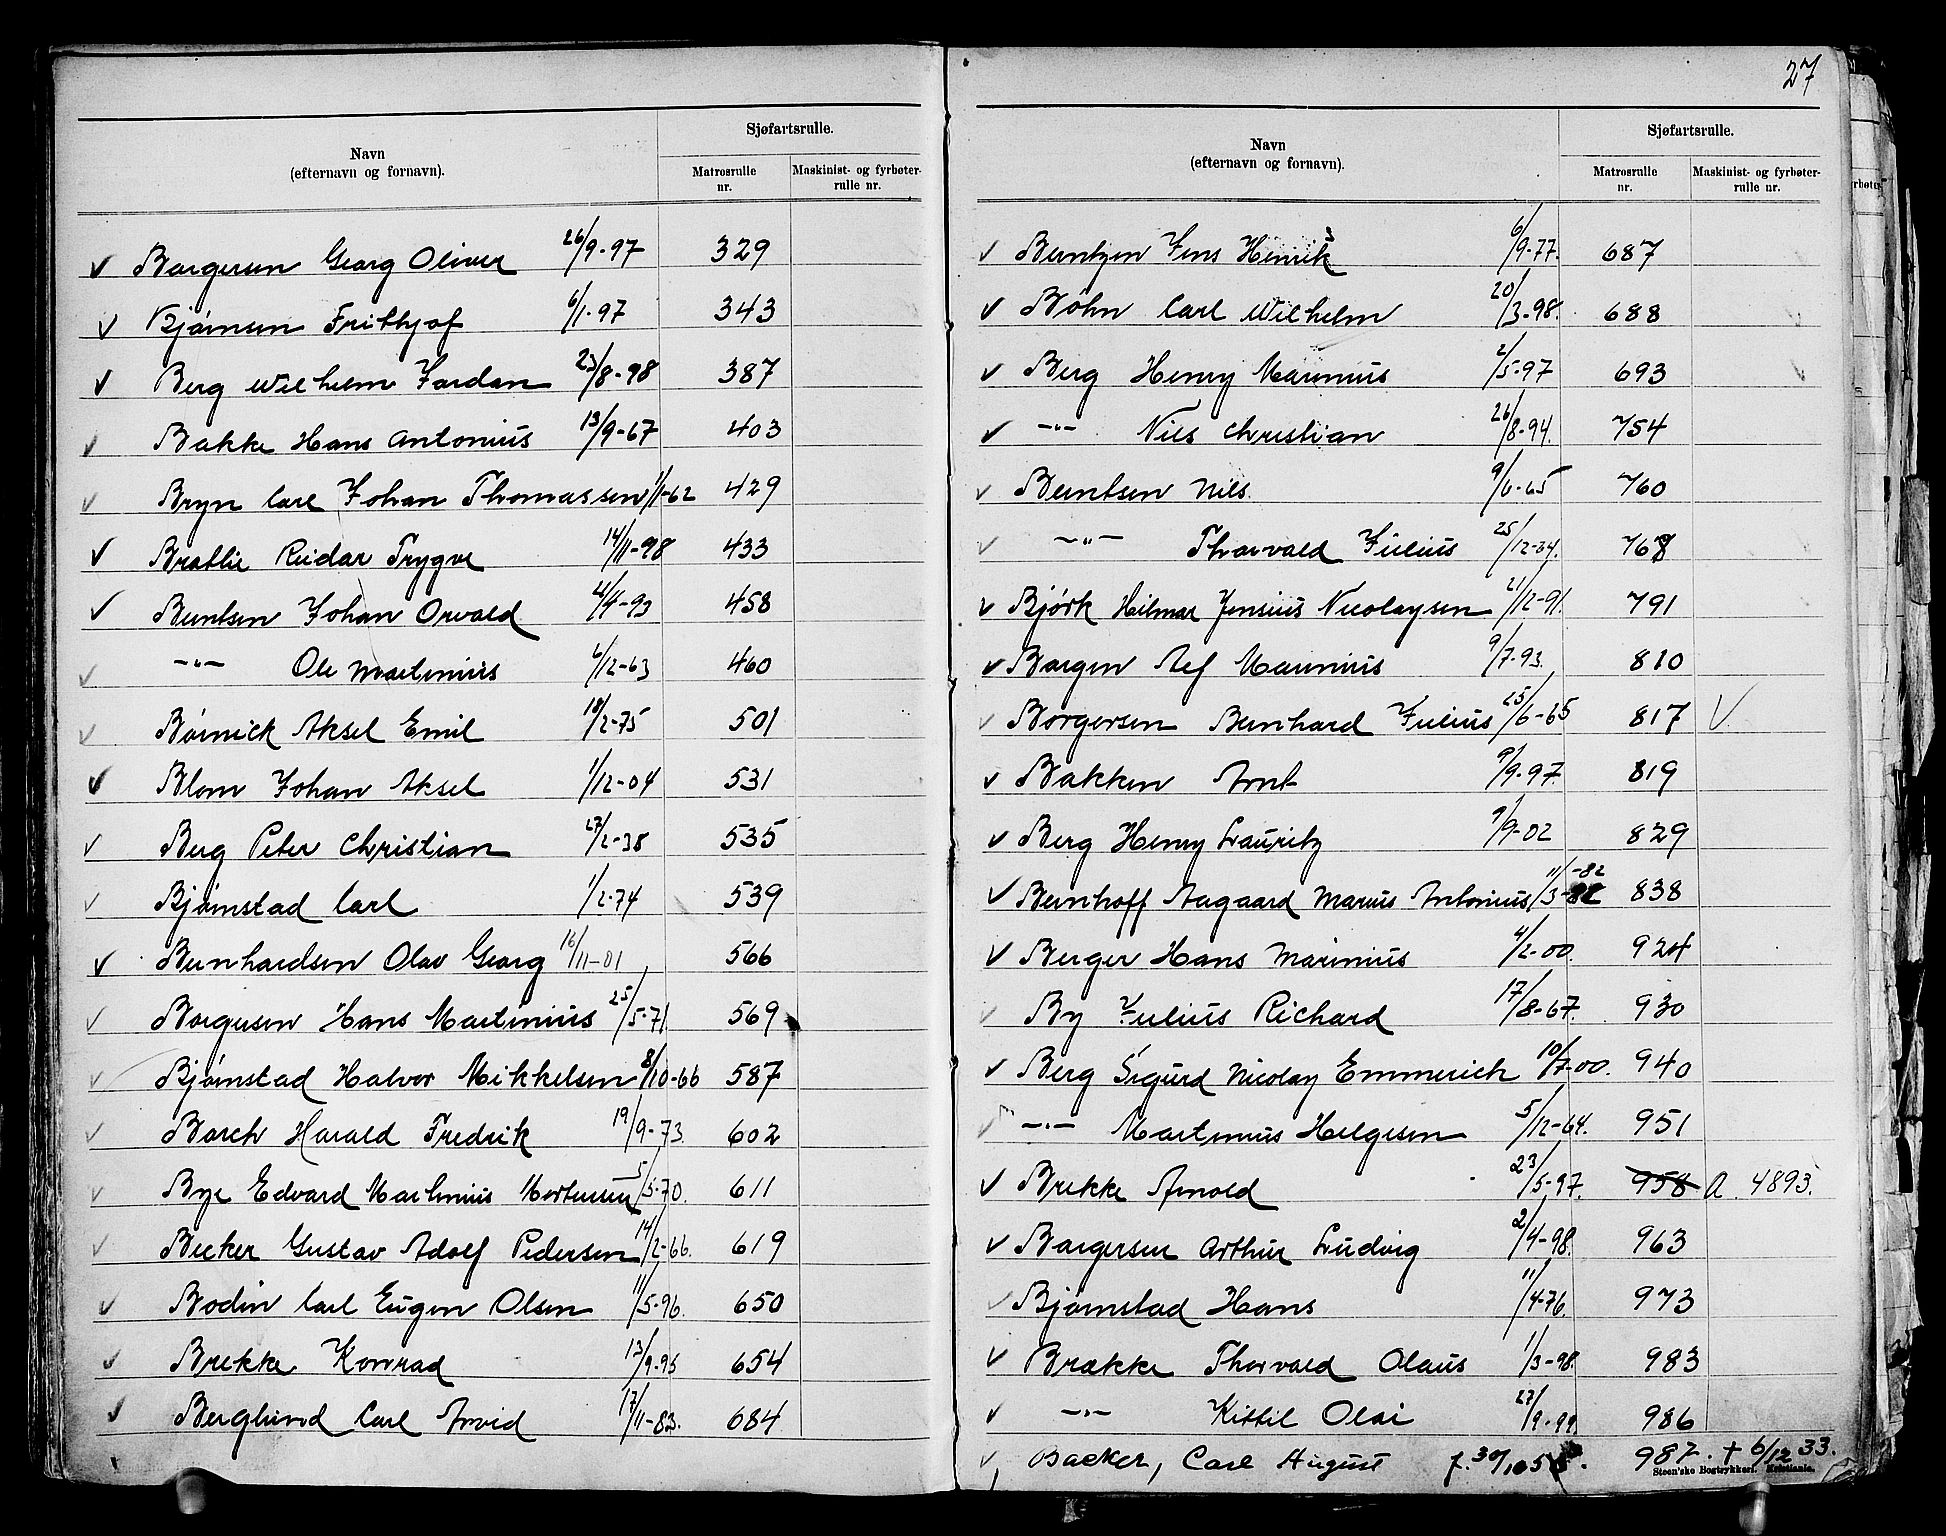 Sjøfartsrulle.
Navn
(efternavn og fornavn).
Matrosrulle nr.
Maskinist- og fyrbøter-rulle nr.
Borgersen Georg Oliver 26/9-97 329
Bjørnsen Frithjof 6/1-97 343
Berg Wilhelm Jordan 23/8-98 387
Bakke Hans Antonius 13/9-67 403
Bryn Carl Johan Thomassen 1/1-62 429
Bratlie Reidar Trygve 14/11-98 433
Berntsen Johan Orvald 2/4-93 458
-"- Ole Martinius 6/12-63 460
Børnick Aksel Emil 18/2-75 501
Blom Johan Aksel 1/12-04 531
Berg Peter Christian 27/2-38 535
Bjørnstad Carl 1/2-74 539
Bernhardsen Olav Georg 16/11-01 566
Borgersen Hans Martinius 25/5-71 569
Bjørnstad Halvor Mikkelsen 8/10-66 587
Borch Harald Fredrik 19/9-73. 602
Bye Edvard Martinius Mortensen 5/5-70. 611
Becker Gustav Adolf Pedersen 14/2-66. 619
Bodin Carl Eugen Olsen 11/5-96. 650
Brekke Konrad 13/9-95 654
Berglund Carl Arvid 17/11-83. 684
27
Sjøfartsrulle.
Navn
(efternavn og fornavn).
Matrosrulle nr.
Maskinist- og fyrbøter-rulle nr.
Berntzen Jens Henrik 6/9-77. 687
Bøhn Carl Wilhelm 20/3-98. 688
Berg Henry Marinius 2/5-97 693
-"- Nils Christian 26/8-94. 754
Berntsen Nils. 9/6-65 760
-"- Thorvald Julius 25/12-34. 768
Bjørk Hilmar Jensius Nicolaysen 2/12-91. 791
Borgen Alf Marinius 9/7-93. 810
Borgersen Bernhard Julius 25/6-65 817 V.
Bakken Arnt 9/9-97. 819
Berg Henry Lauritz 9/9-02 829
Bernhoff Aagaard Marius Antonius 11/3-82 838
Berger Hans Marinius 4/2-00. 924
By Julius Richard 17/8-67. 930
Berg Sigurd Nicolay Emmerich 10/7-00. 940
-"- Martinius Helgesen 5/12-64. 951
Brekke Arnold 23/5-97. 958 A. 4893.
Borgersen Arthur Ludvig 2/4-98. 963
Bjørnstad Hans 11/4-76. 973
Brække Thorvald Olaus 1/3-98. 983
-"- Kittil Olai 27/9-99. 986
Backer, Carl August f. 30/10 987. + 6/12 33.
Steen'ske Bogtrykkeri. Kristiania.